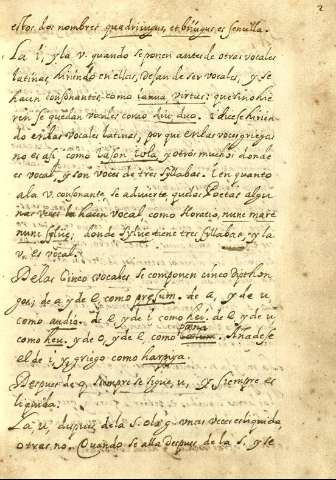 2
estos dos nombres quadriiugus, et biiugus es senzilla.
La i, y la v. quando se ponen antes de otras vocales
latinas hiriendo en ellas, dexan de ser vocales, y se
hacen consonantes como ianua, virtus: que si no hie
ren se quedan vocales como huic duo. i dice se hirien
do en las vocales latinas, por que en las voces griegas
no es asi como Iason Iola, y otros muchos donde
es vocal, y son voces de tres syllabas. i en quanto
a la v. consonante se advierte que los Poetas algu
nas veces la hacen vocal como Horatio, nunc mare
nunc sylue, donde sylue tiene tres syllabas, y la
v. es vocal.
De las cinco vocales se componen cinco dipthon
gos; de a y de e, como presum. de a, y de u,
como audio. de e y de i como hei. de e, y de u
como heu. y de o, y de e, como pœna. Añadese
el de i, y griego como harpya.
Despues de q, siempre se sigue, u, y siempre es
liquida.
La, u, despues de la s. o la g. unas veces es liquida,
otras no. Quando se alla despues de la s. y se